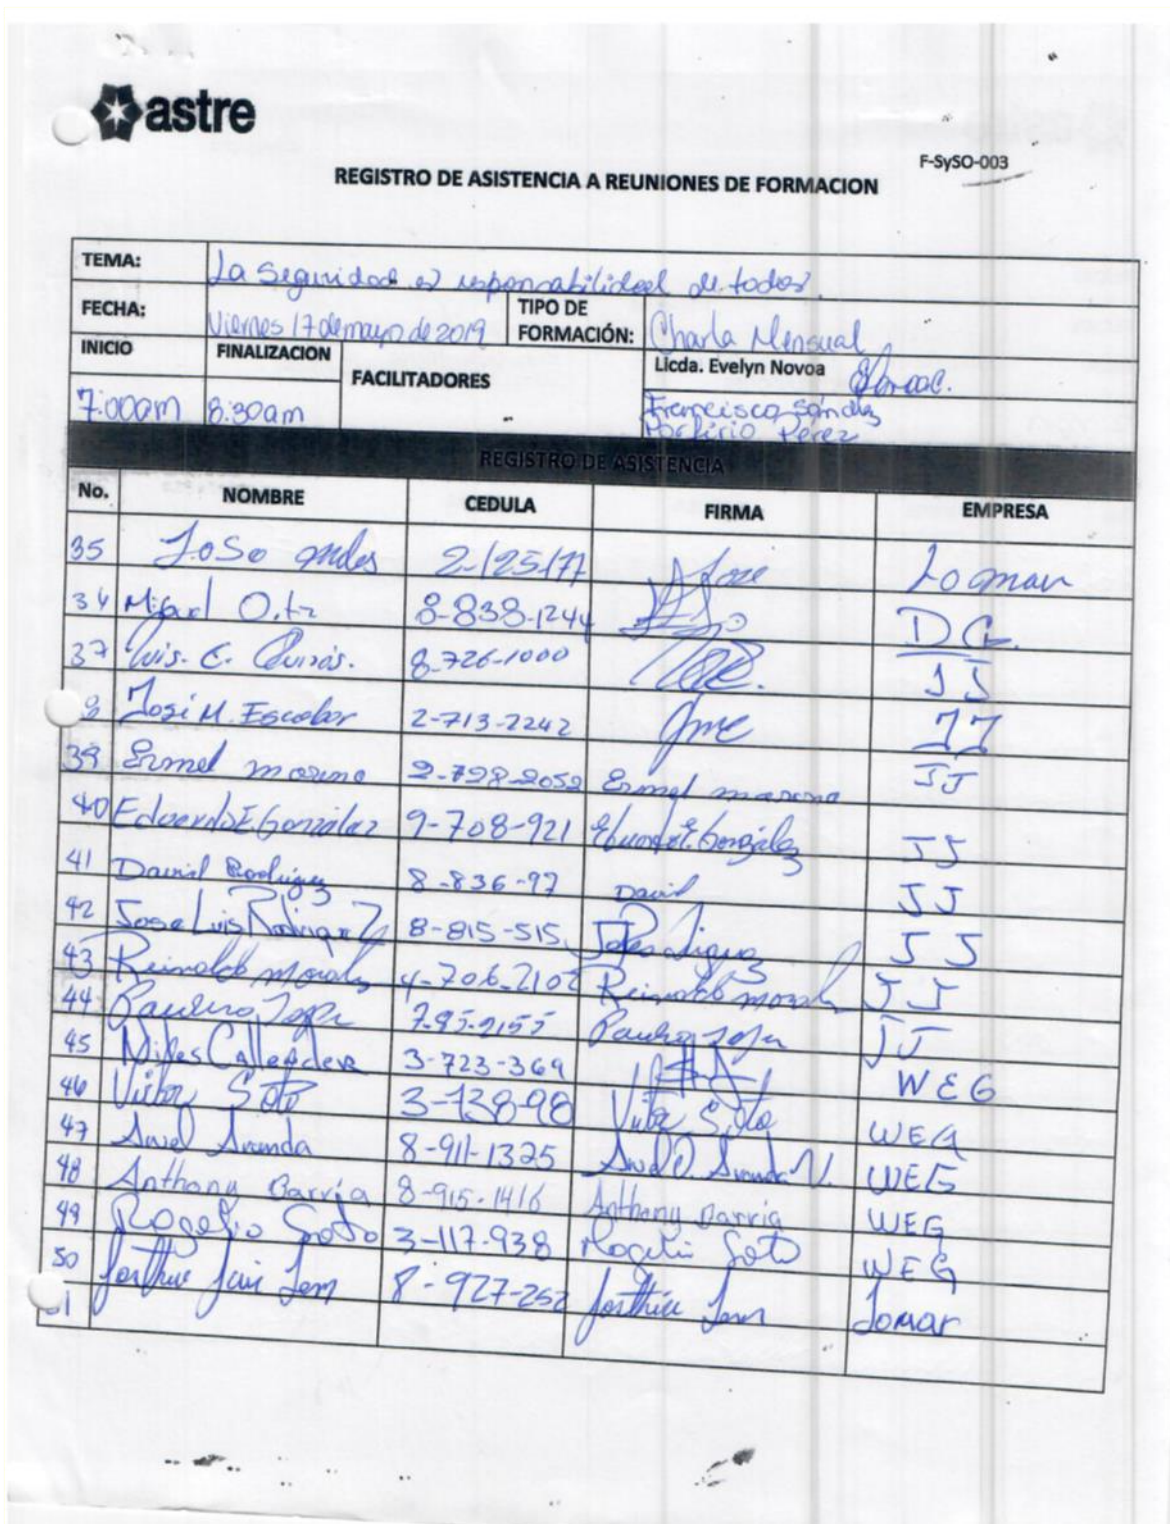 astre
F-SySO-003
REGISTRO DE ASISTENCIA A REUNIONES DE FORMACION
TEMA: La Seguridad es responsabilidad de todos.
FECHA: Viernes 17 de mayo de 2019 TIPO DE FORMACIÓN: Charla Mensual
INICIO FINALIZACION FACILITADORES Licda. Evelyn Novoa
7:00am 8:30am Francisco Sández
Porfirio Pérez
REGISTRO DE ASISTENCIA
No. NOMBRE CEDULA FIRMA EMPRESA
35 Jose 2-125-177 Jose
36 Miguel Ortiz 8-838-1244
37 Luis. E. Quirós. 8-726-1000 JJ
8 José M. Escobar 2-713-2242 JJ
39 Ermel moreno 2-728-2052 Ermel moreno JJ
40 Eduardo E. González 9-708-921 Eduardo E. González JJ
41 David Rodriguez 8-836-97 David JJ
42 Jose Luis Rodriguez 8-815-515 JJ
43 Reinaldo morales 4-706-2102 Reinaldo morales JJ
44 JJ
45 3-723-369 WEG
46 Victor Soto 3-138-98 Victor Soto WEG
47 Anel Aranda 8-911-1325 WEG
48 Anthony Barria 8-915-1416 Anthony Barria WEG
49 Rogelio Soto 3-117-938 Rogelio Soto WEG
50 8-927-252 Lomar
51